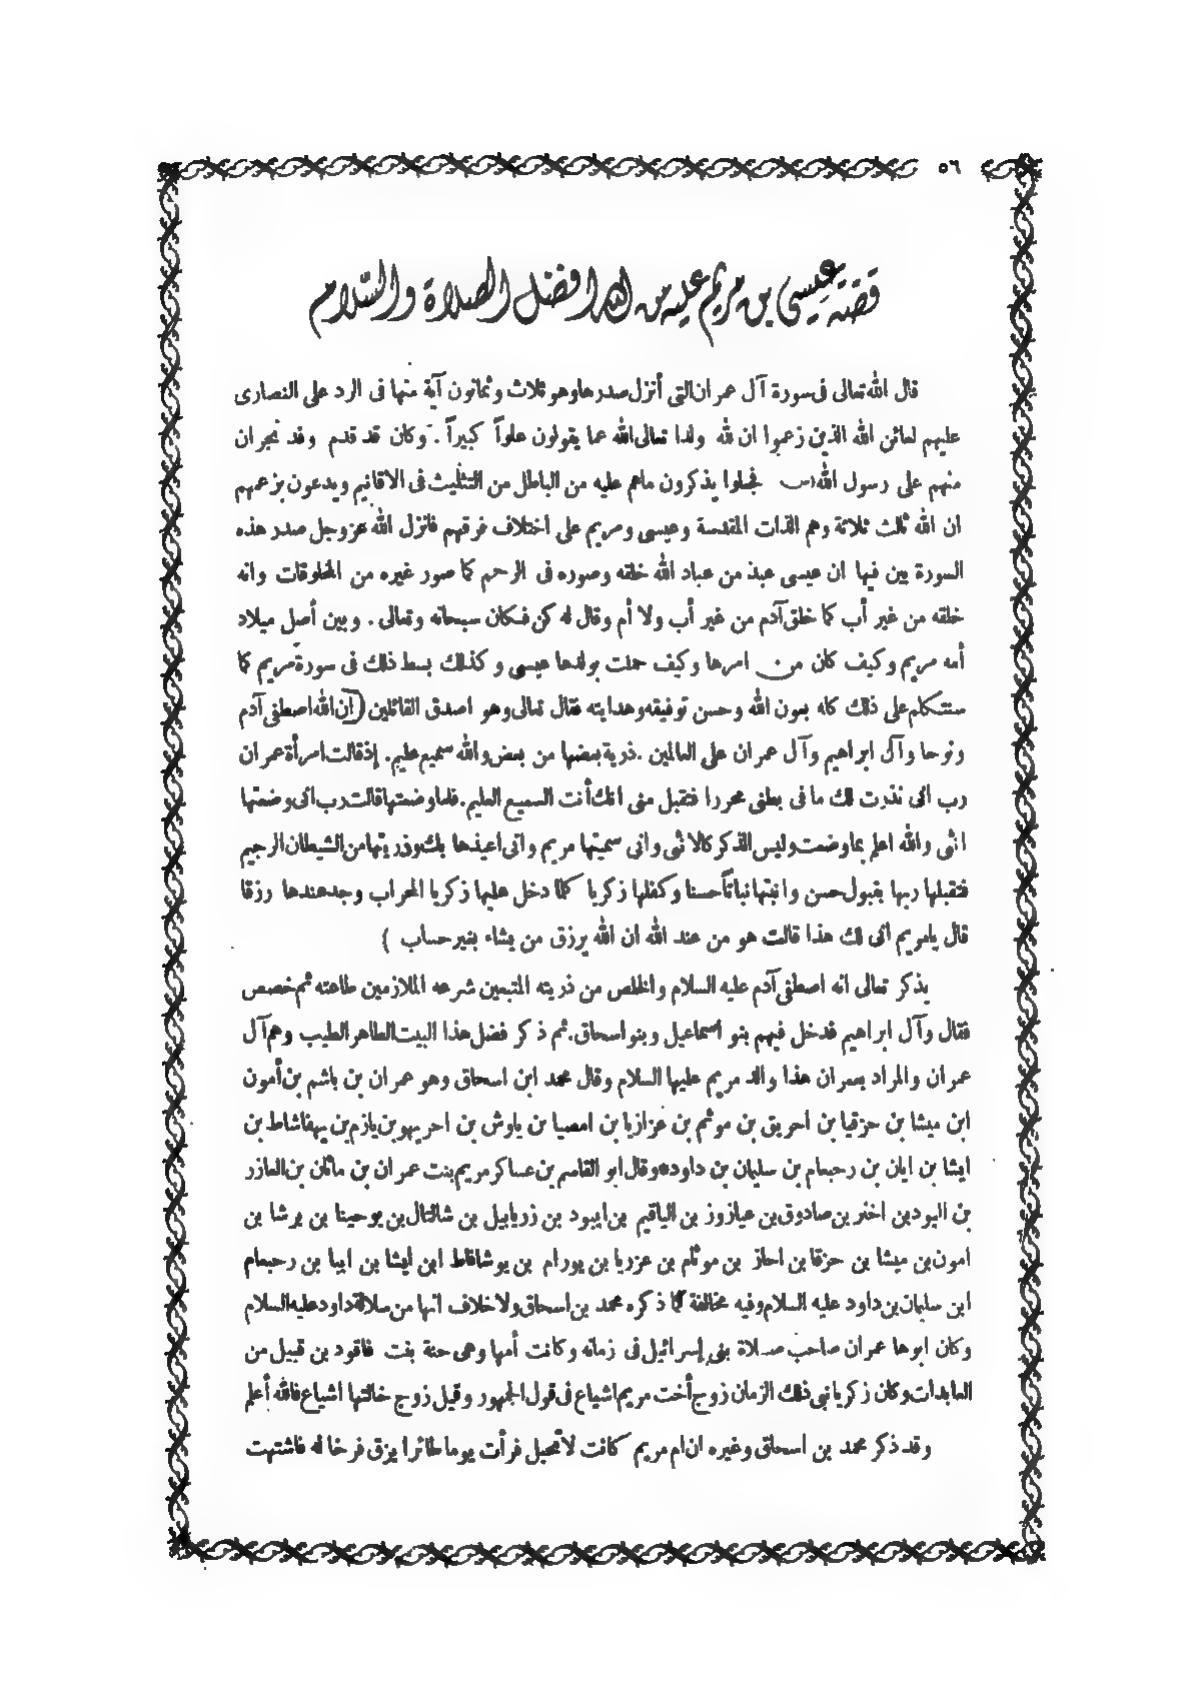 ٥٦
قصة عيسى بن مريم عليه من الله افضل الصلاة والسلام
قال الله تعالى فى سورة آل عمران التى أنزل صدرها وهو ثلاث وثمانون آية منها فى الرد على النصارى
عليهم لعائن الله الذين زعموا ان لله ولدا تعالى الله عما يقولون علواً كبيراً . وكان قد قدم وفد نجران
منهم على رسول الله (ص) فجعلوا يذكرون ماهم عليه من الباطل من التثليث فى الاقانيم ويدعون بزعمهم
ان الله ثالث ثلاثة وهم الذات المقدسة وعيسى ومريم على اختلاف فرقهم فانزل الله عز وجل صدر هذه
السورة بين فيها ان عيسى عبد من عباد الله خلقه وصوره فى الرحم كما صور غيره من المخلوقات وانه
خلقه من غير أب كما خلق آدم من غير أب ولا أم وقال له كن فكان سبحانه وتعالى . وبين أصل ميلاد
أمه مريم وكيف كان من امرها وكيف حملت بولدها عيسى وكذلك بسط ذلك فى سورة مريم كما
سنتكلم على ذلك كله بعون الله وحسن توفيقه وهدايته فقال تعالى وهو اصدق القائلين (ان الله اصطفى آدم
ونوحا وآل ابراهيم وآل عمران على العالمين . ذرية بعضها من بعض والله سميع عليم . إذ قالت امرأة عمران
رب انى نذرت لك ما فى بطنى محررا فتقبل منى انك أنت السميع العليم . فلما وضعتها قالت رب انى وضعتها
انثى والله اعلم بما وضعت وليس الذكر كالانثى وانى سميتها مريم وانى اعيذها بك وذريتها من الشيطان الرجيم
فتقبلها ربها بقبول حسن وانبتها نباتاً حسنا وكفلها زكريا كلما دخل عليها زكريا المحراب وجد عندها رزقا
قال يامريم انى لك هذا قالت هو من عند الله ان الله يرزق من يشاء بغير حساب )
يذكر تعالى انه اصطفى آدم عليه السلام والخلص من ذريته المتبعين شرعه الملازمين طاعته ثم خصص
فقال وآل ابراهيم فدخل فيهم بنو اسماعيل وبنو اسحاق . ثم ذكر فضل هذا البيت الطاهر الطيب وهم آل
عمران والمراد بعمران هذا والد مريم عليها السلام وقال محمد ابن اسحاق وهو عمران بن باشم بن أمون
ابن ميشا بن حزقيا بن احريق بن موثم بن عزازيا بن امصيا بن ياوش بن احريهو بن يازم بن يهفاشاط بن
ايشا بن ايان بن رحبعام بن سليمان بن داود * وقال ابو القاسم بن عساكر مريم بنت عمران بن ماثان بن العازر
بن اليود بن اخنر بن صادوق بن عيازوز بن الياقيم بن ايبود بن زريابيل بن شالتال بن يوحينا بن برشا بن
امون بن ميشا بن حزقا بن احاز بن موثام بن عزريا بن يورام بن يوشافاط ابن ايشا بن ايبا بن رحبعام
ابن سليمان بن داود عليه السلام وفيه مخالفة لما ذكره محمد بن اسحاق ولا خلاف انها من سلالة داود عليه السلام
وكان ابوها عمران صاحب صلاة بنى إسرائيل فى زمانه وكانت أمها وهى حنة بنت فاقود بن قبيل من
العابدات وكان زكريا نبى ذلك الزمان زوج أخت مريم اشياع فى قول الجمهور وقيل زوج خالتها اشياع فالله أعلم
وقد ذكر محمد بن اسحاق وغيره ان ام مريم كانت لا تحبل فرأت يوما طائرا يزق فرخا له فاشتهت